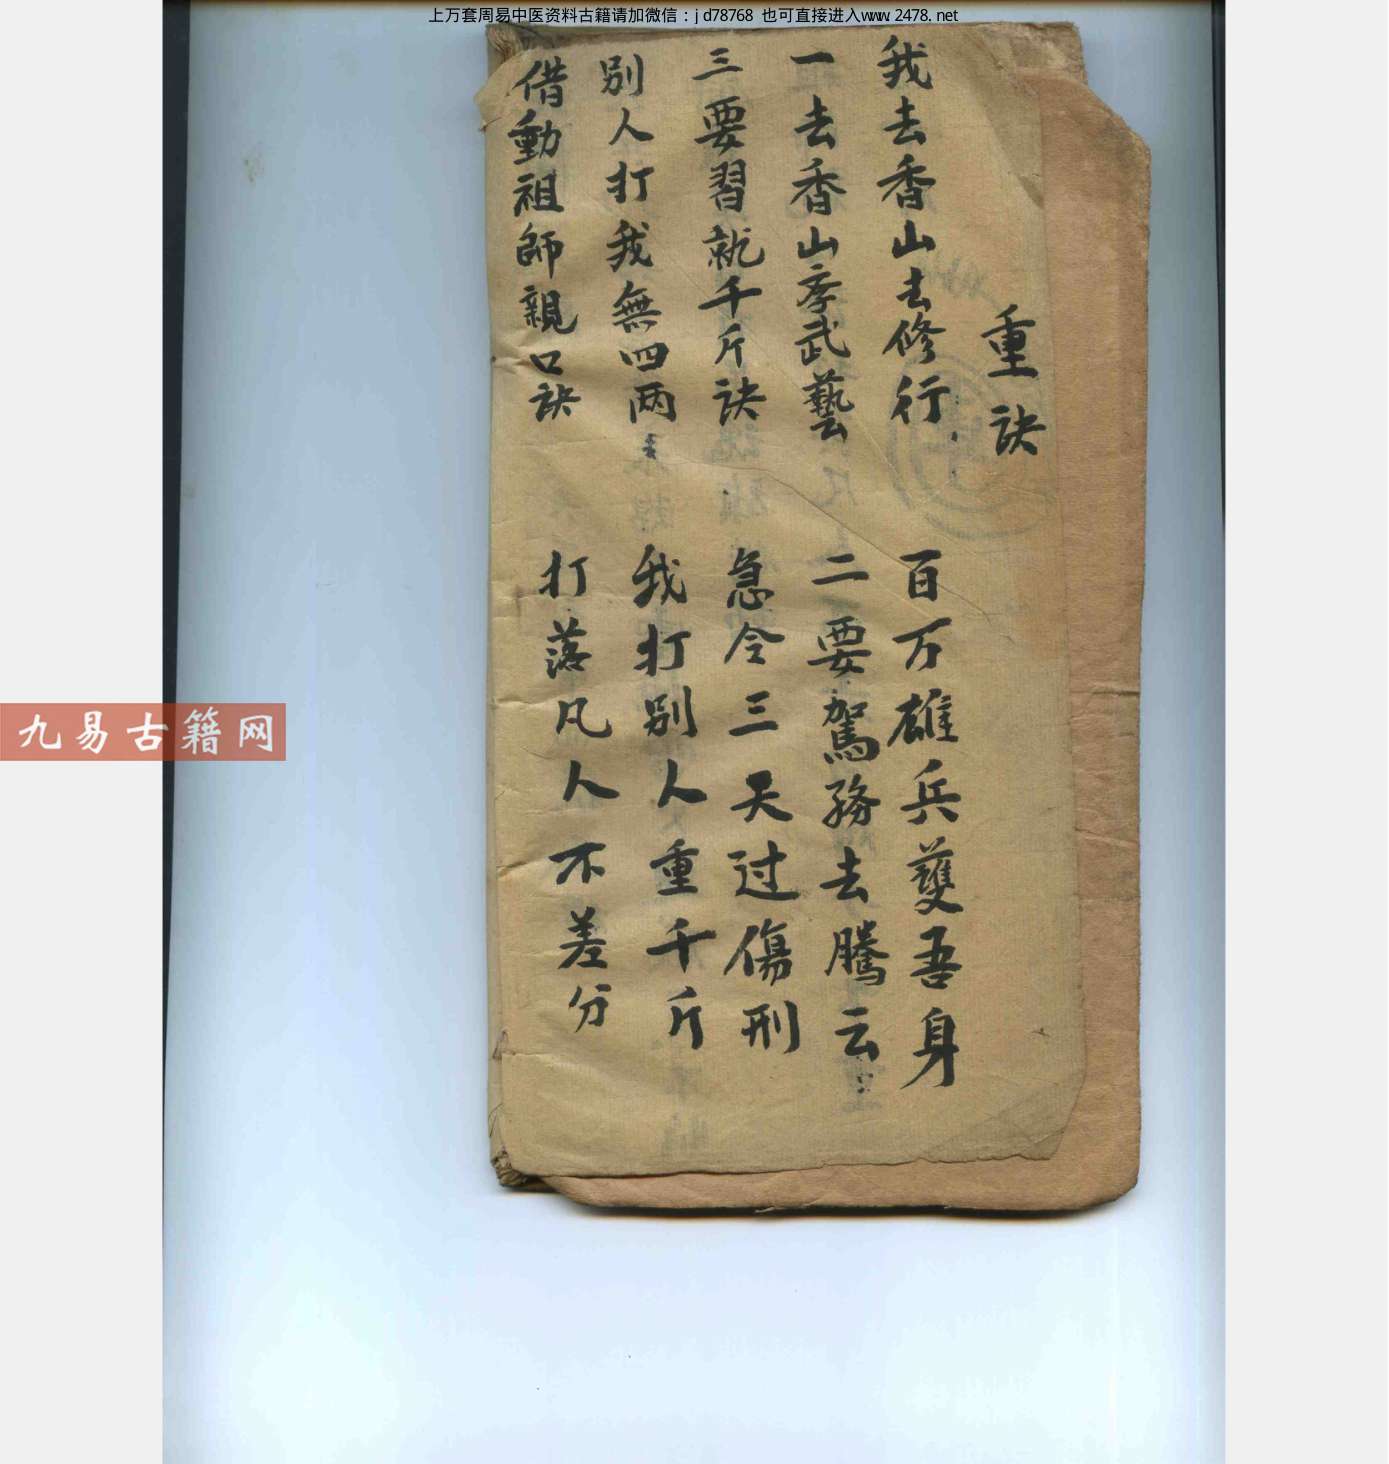 上万套周易中医资料古籍请加微信：jd78768 也可直接进入www.2478.net
重訣
我去香山去修行 百万雄兵護吾身
一去香山孝武藝 二要駕務去騰云
三要習就千斤訣 急令三天过傷刑
别人打我無四両 我打别人重千斤
借動祖師親口訣 打落凡人不差分
九易古籍网